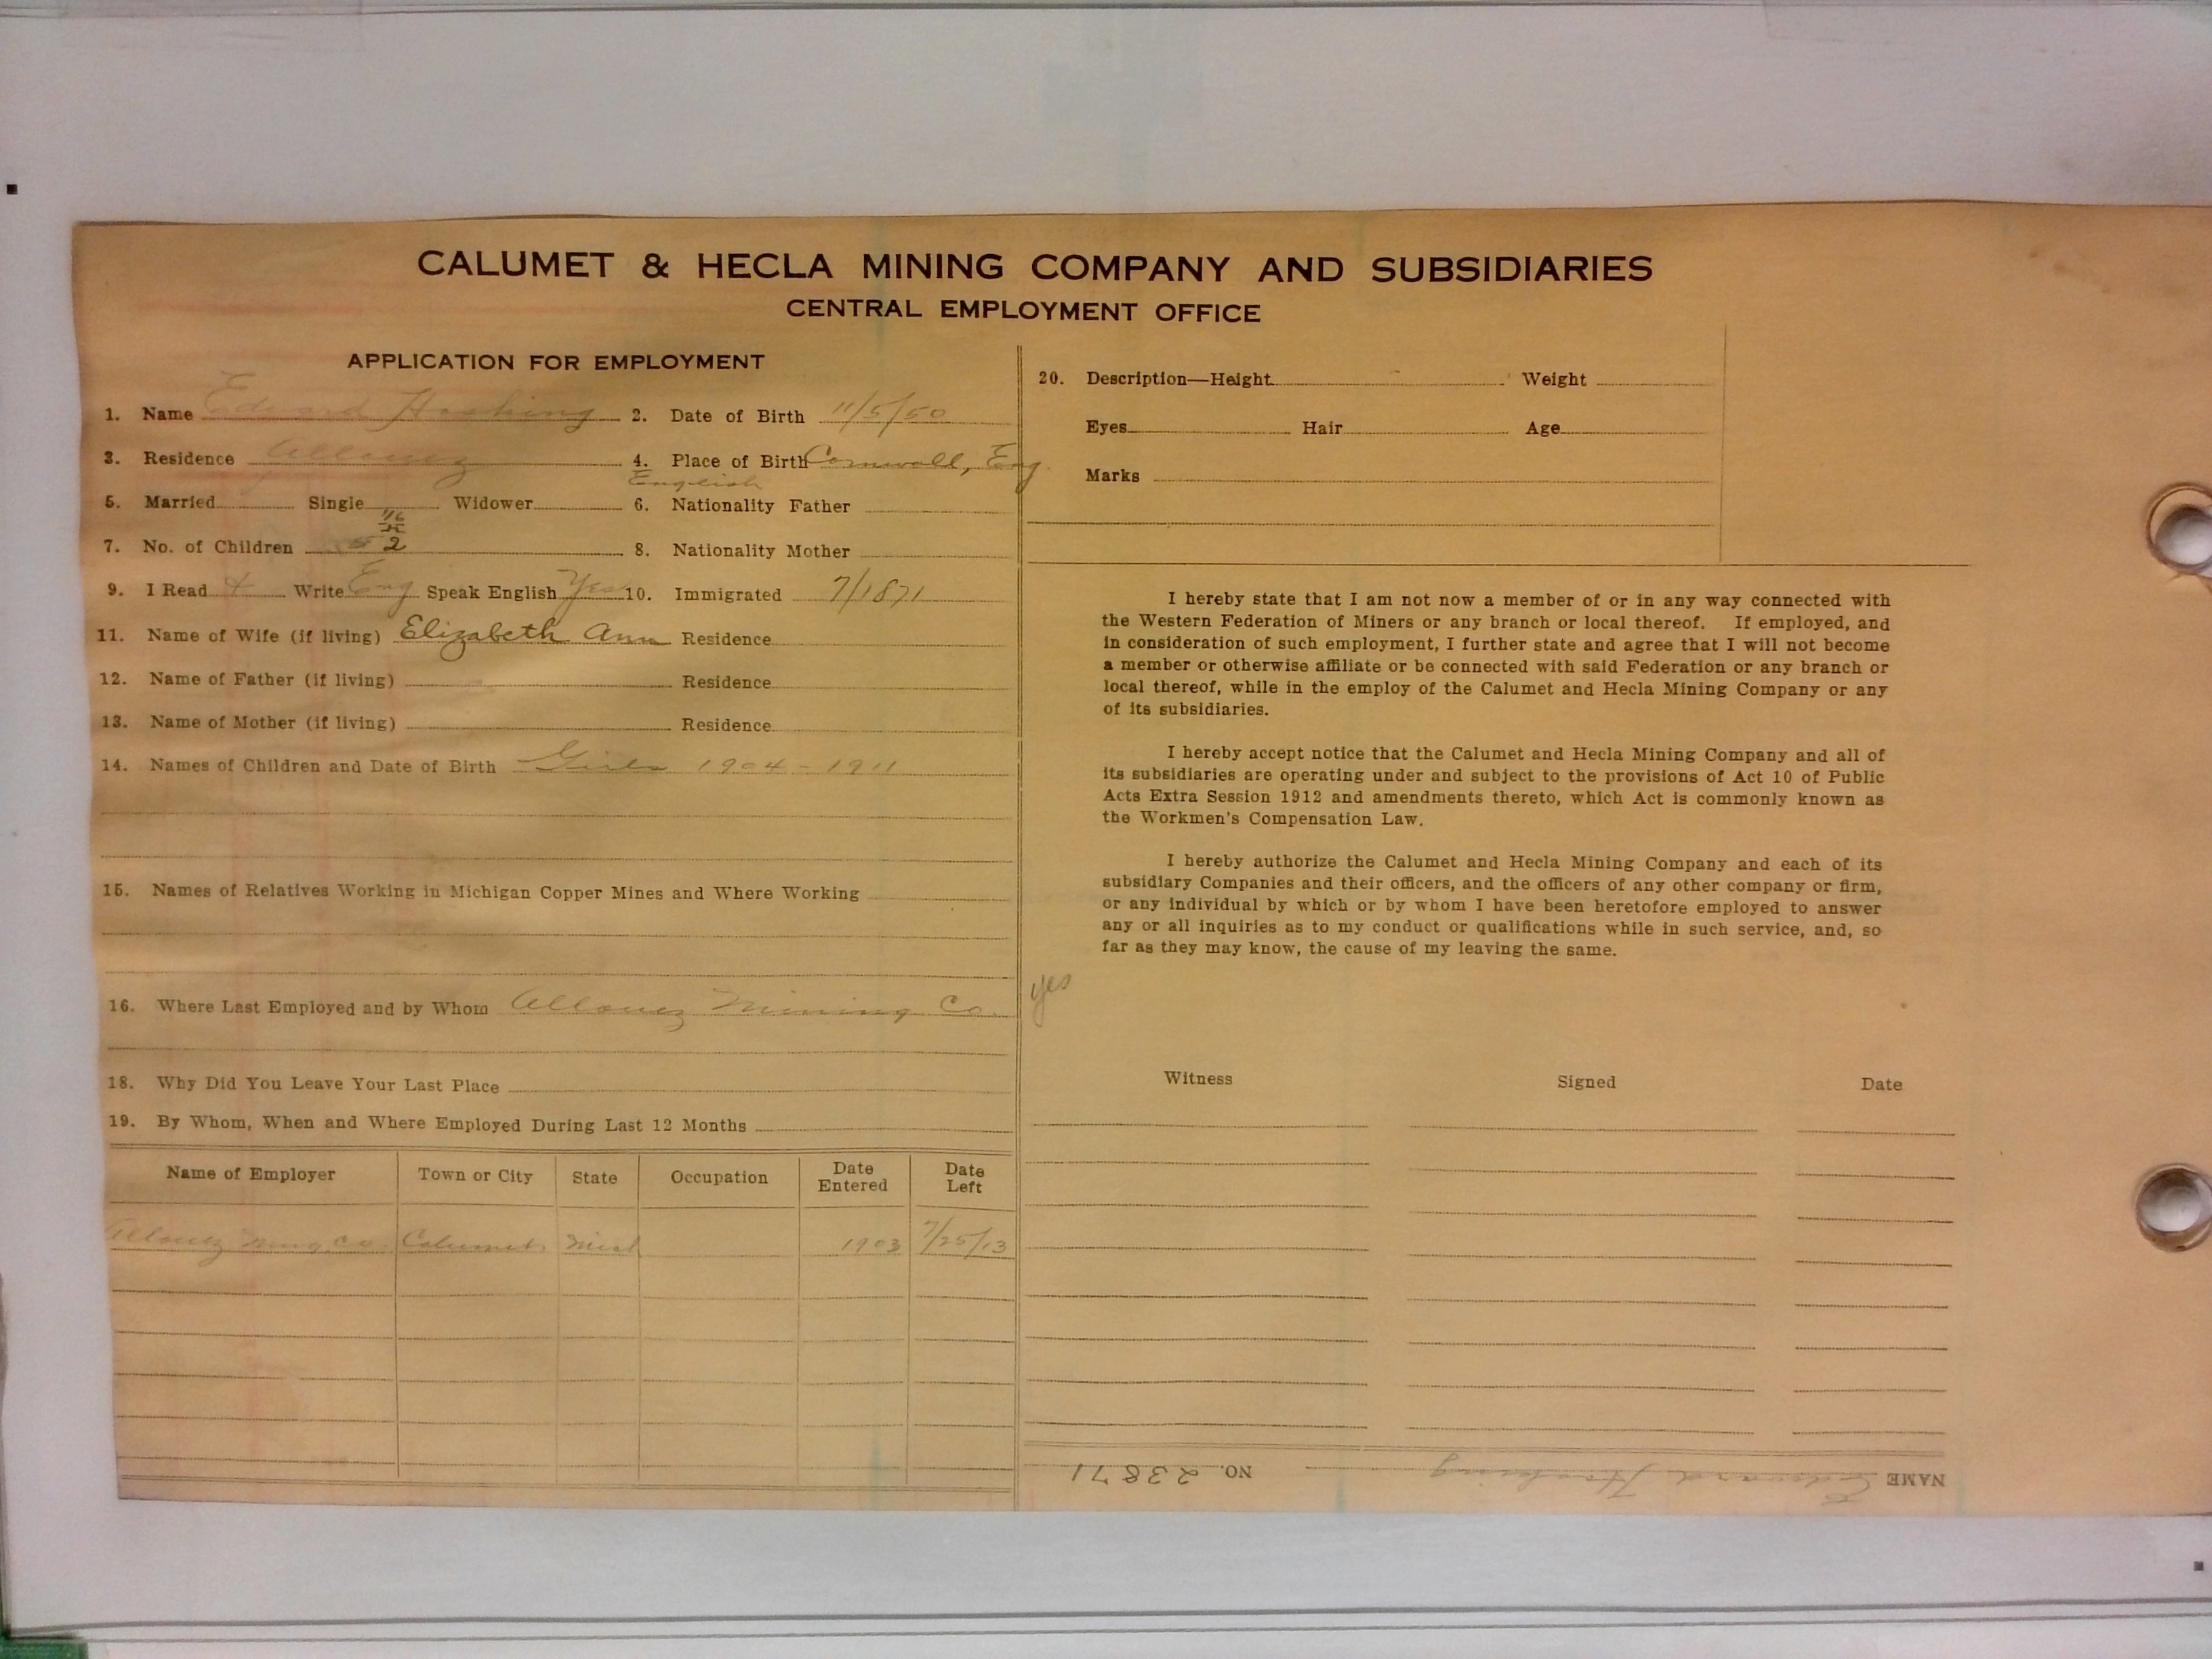 CALUMET & HECLA MINING COMPANY AND SUBSIDIARIES
CENTRAL EMPLOYMENT OFFICE
APPLICATION FOR EMPLOYMENT
1. Name Edward Hosking 2. Date of Birth 11/5/50
3. Residence Allouez 4. Place of Birth Cornwall, Eng
English
5. Married Single Widower 6. Nationality Father
7. No. of Children 2 8. Nationality Mother
9. I Read + Write Eng Speak English Yes 10. Immigrated 7/1871
11. Name of Wife (if living) Elizabeth Ann Residence
12. Name of Father (if living) Residence
13. Name of Mother (if living) Residence
14. Names of Children and Date of Birth Girls 1904 - 1911
15. Names of Relatives Working in Michigan Copper Mines and Where Working
16. Where Last Employed and by Whom Allouez Mining Co.
18. Why Did You Leave Your Last Place
19. By Whom, When and Where Employed During Last 12 Months
Name of Employer Town or City State Occupation Date Entered Date Left
Allouez Ming Co. Calumet Mich 1903 7/25/13
20. Description—Height Weight
Eyes Hair Age
Marks
I hereby state that I am not now a member of or in any way connected with
the Western Federation of Miners or any branch or local thereof. If employed, and
in consideration of such employment, I further state and agree that I will not become
a member or otherwise affiliate or be connected with said Federation or any branch or
local thereof, while in the employ of the Calumet and Hecla Mining Company or any
of its subsidiaries.
I hereby accept notice that the Calumet and Hecla Mining Company and all of
its subsidiaries are operating under and subject to the provisions of Act 10 of Public
Acts Extra Session 1912 and amendments thereto, which Act is commonly known as
the Workmen's Compensation Law.
I hereby authorize the Calumet and Hecla Mining Company and each of its
subsidiary Companies and their officers, and the officers of any other company or firm,
or any individual by which or by whom I have been heretofore employed to answer
any or all inquiries as to my conduct or qualifications while in such service, and, so
far as they may know, the cause of my leaving the same.
yes
Witness Signed Date
NAME Edward Hosking NO. 23871